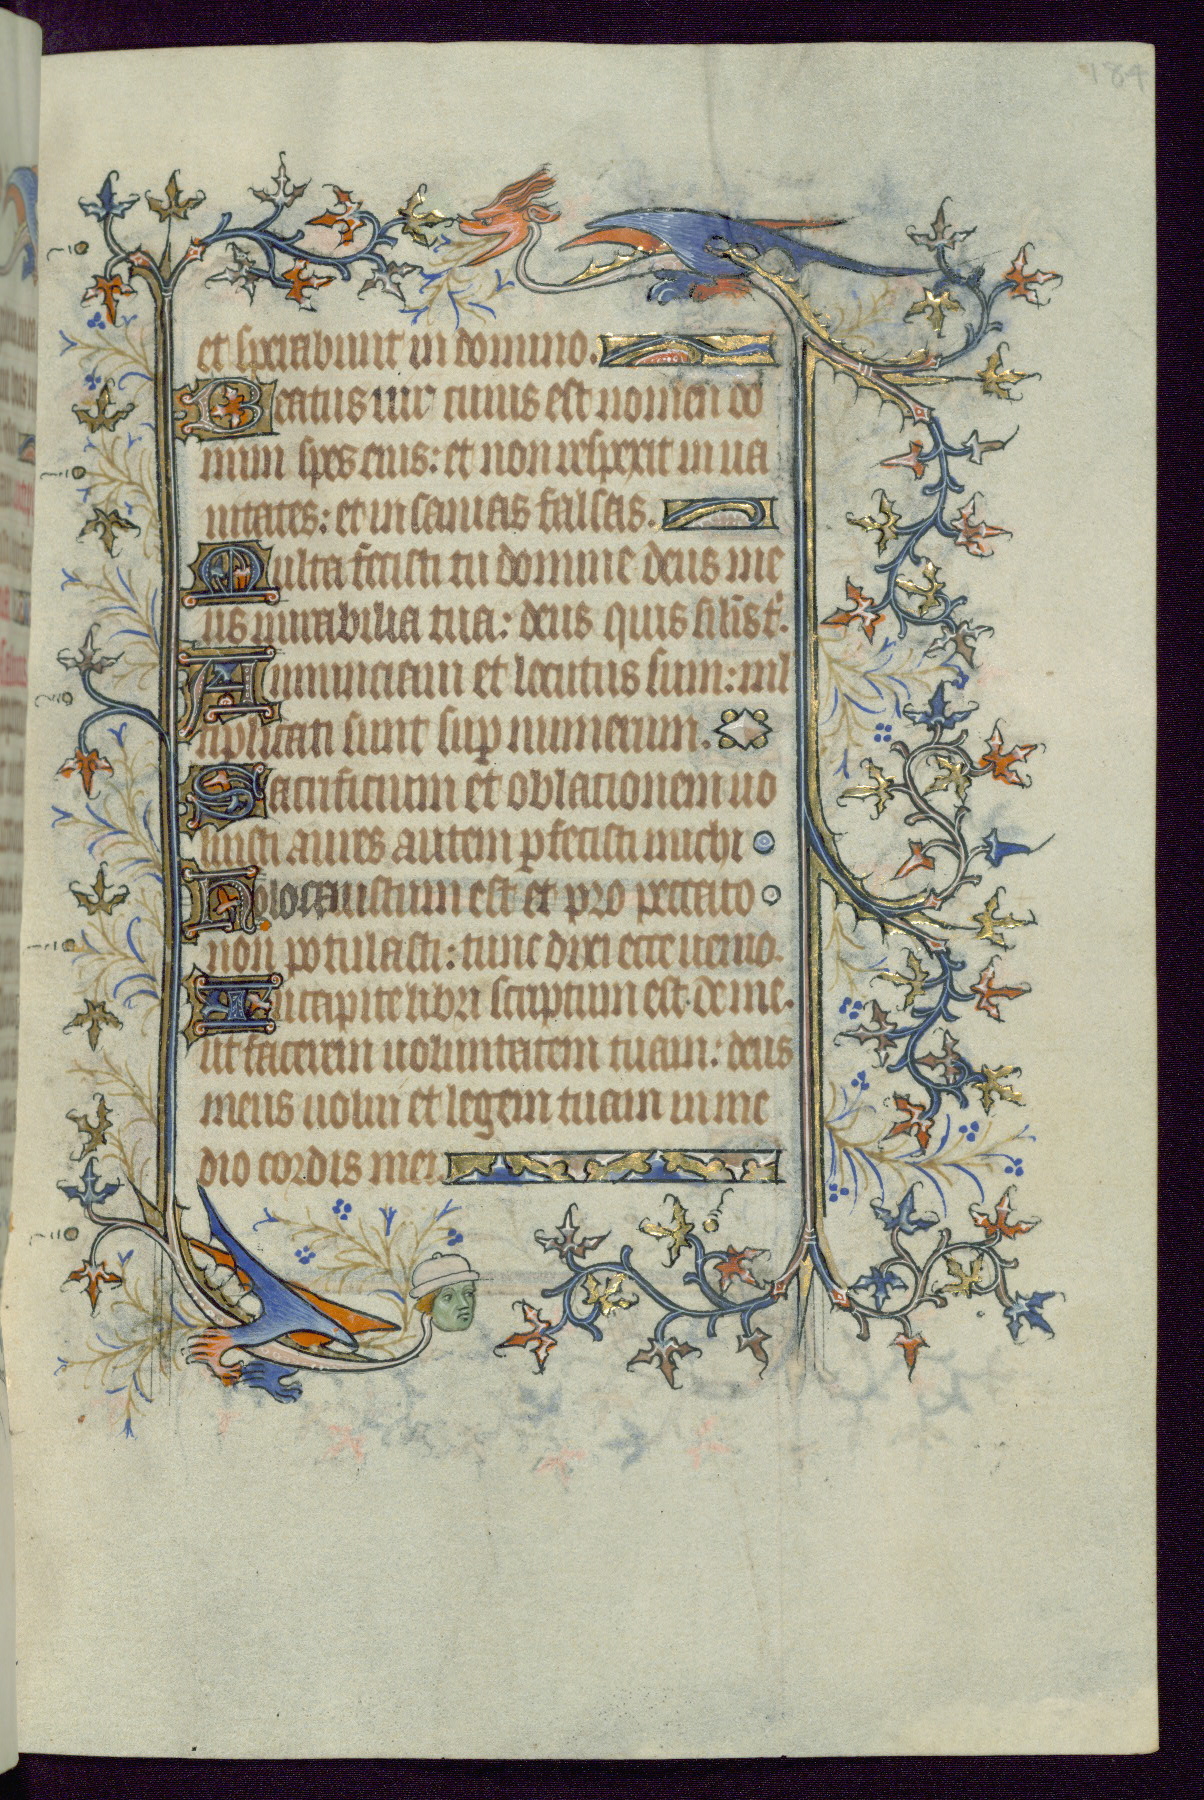 184
et sperabunt in domino.
Beatus uir cuius est nomen do
mini spes eius: et non respexit in ua
nitates: et insanias falsas.
Multa fecisti tu domine deus me
us mirabilia tua: deus quis similis t̾.
Annunciaui et locutus sum: ml
tiplicati sunt sup numerum.
Sacrificium et oblationem no
luisti aures autem pfecisti michi
Holocaustum est et pro peccato
non postulasti: tunc dixi ecce uenio.
In capite libri scriptum est de me.
ut facerem uoluntatem tuam: deus
meus uolui et legem tuam in me
dio cordis mei.